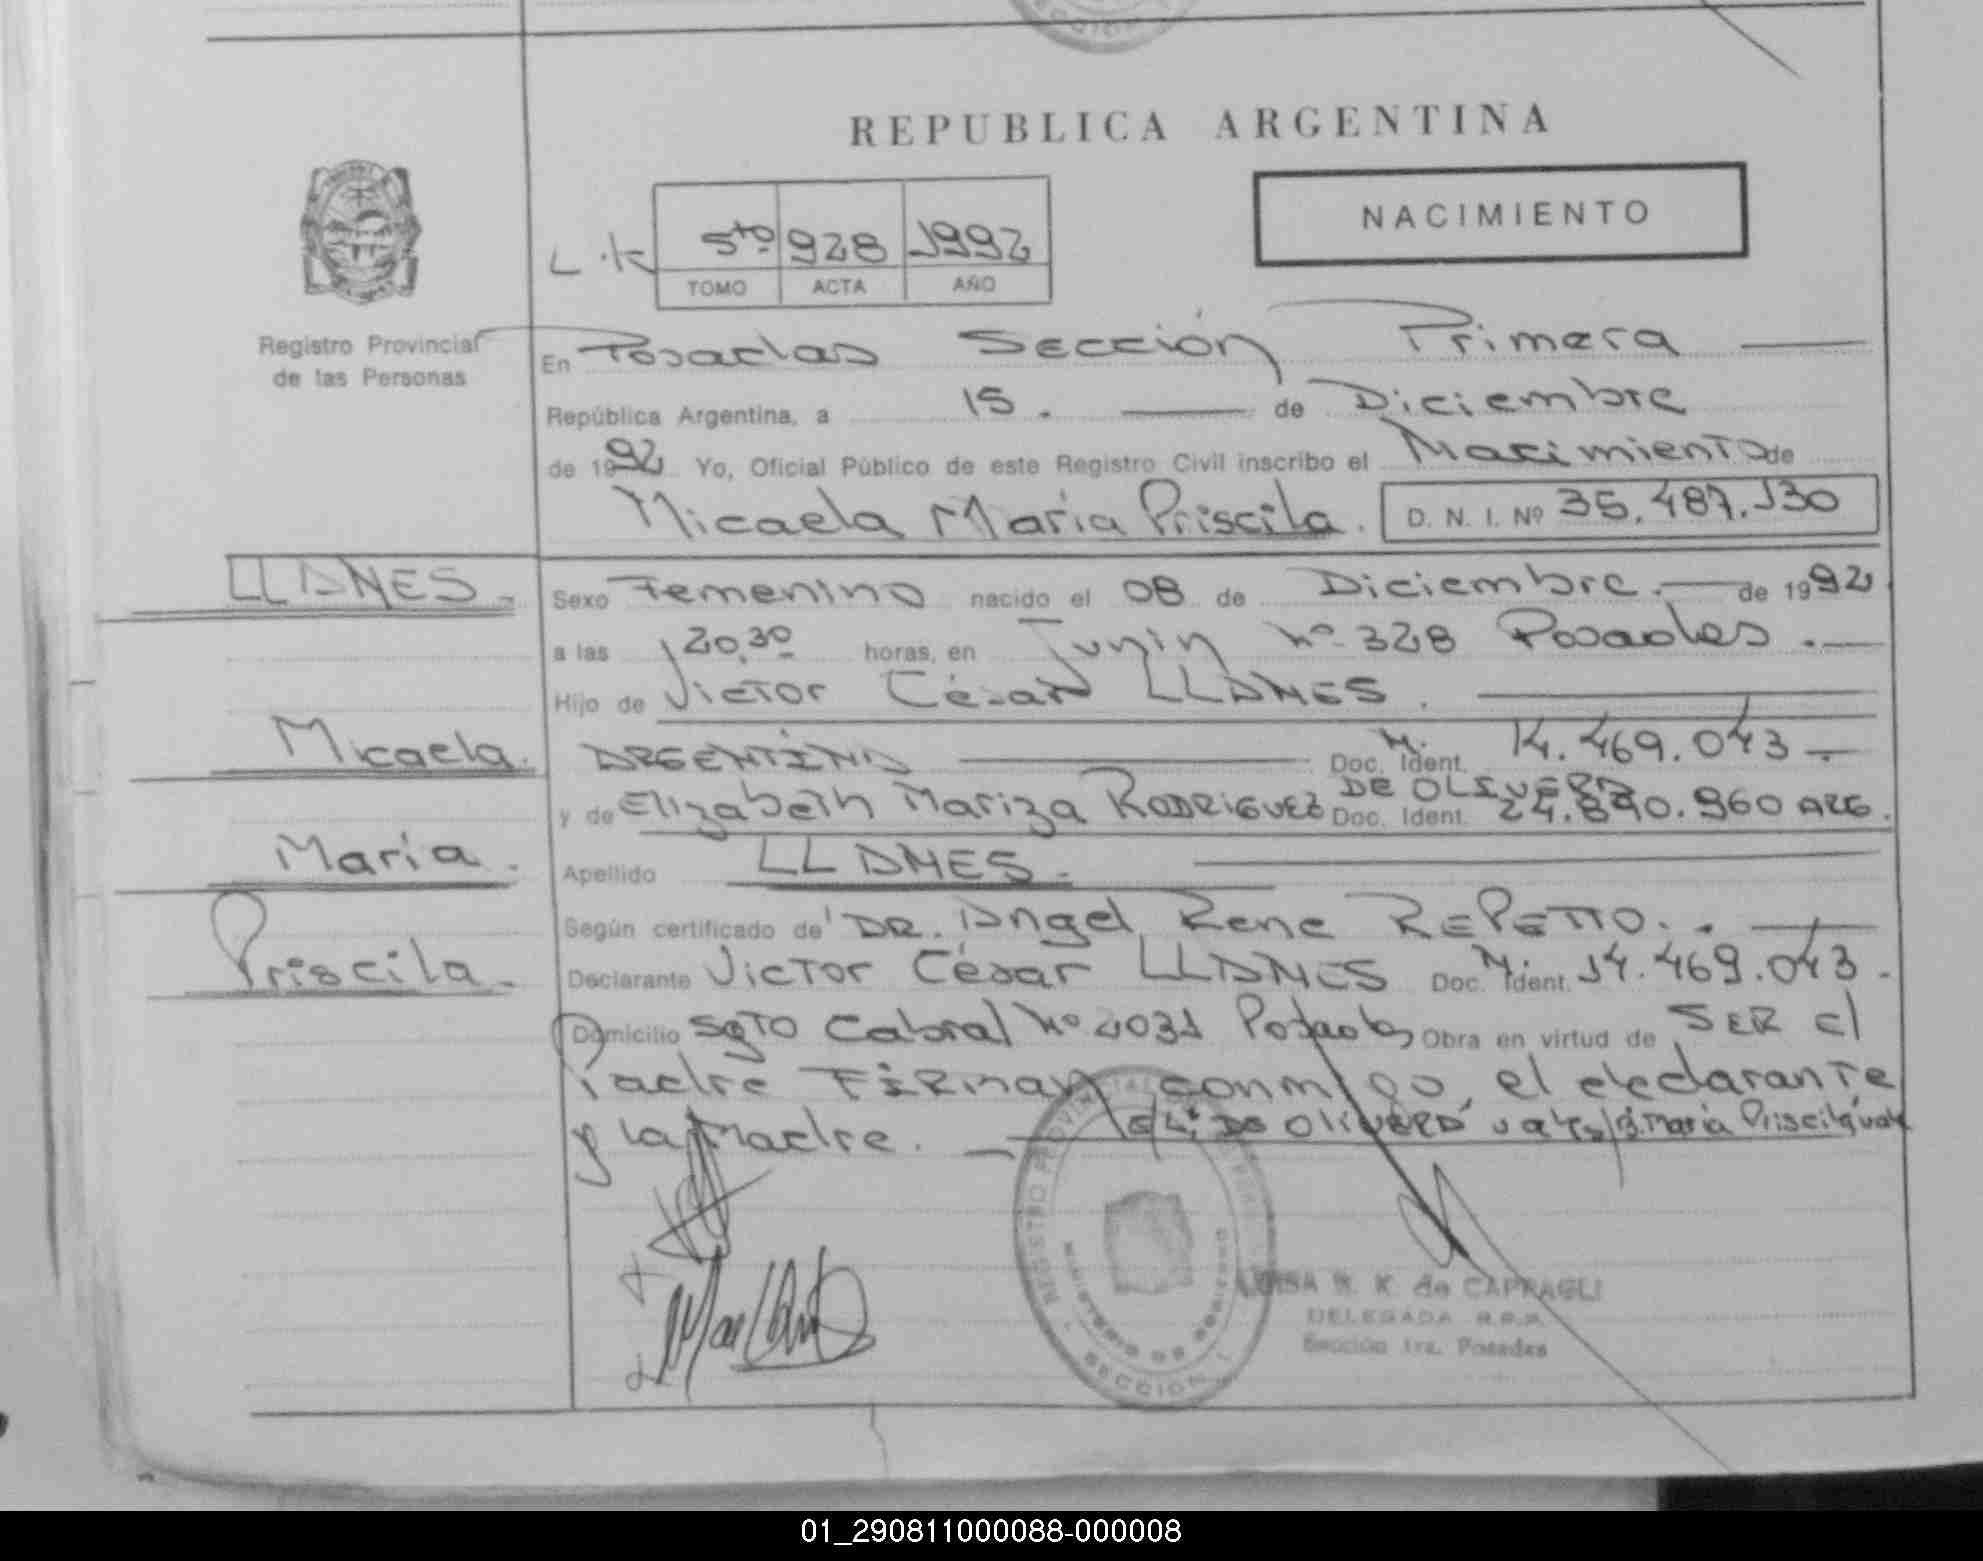 REPUBLICA ARGENTINA
NACIMIENTO
5to 928 1992
TOMO ACTA AÑO
Registro Provincial
de las Personas
En Posadas Sección Primera
República Argentina, a 15. de Diciembre
de 1992 Yo, Oficial Público de este Registro Civil inscribo el Nacimiento de
Micaela María Priscila. D. N. I. Nº 35.487.130
LLANES.
Sexo Femenino nacido el 08 de Diciembre. de 1992
a las 20,30 horas, en Junin Nº 328 Posadas.
Hijo de Victor César LLANES.
Micaela.
ARGENTINO Doc. M. Ident. 14.469.043
DE OLIVERA
y de Elizabeth Mariza RODRIGUEZ Doc. Ident. 24.890.960 ARG.
María.
Apellido LLANES.
Según certificado de DR. Angel Rene REPETTO.
Priscila.
Declarante Victor César LLANES Doc. M. Ident. 14.469.043.
Domicilio Sgto Cabral Nº 2031 Posadas Obra en virtud de SER el
Padre FIRMAN conmigo, el declarante
y la Madre. E/L: DE OLIVERA vale S/B. María Priscila vale
REGISTRO PROVINCIAL DE LAS PERSONAS
MINISTERIO DE GOBIERNO
SECCION 1
LUISA R. K. de CAPRAGLI
DELEGADA R.P.P.
Sección 1ra. Posadas
01_290811000088-000008